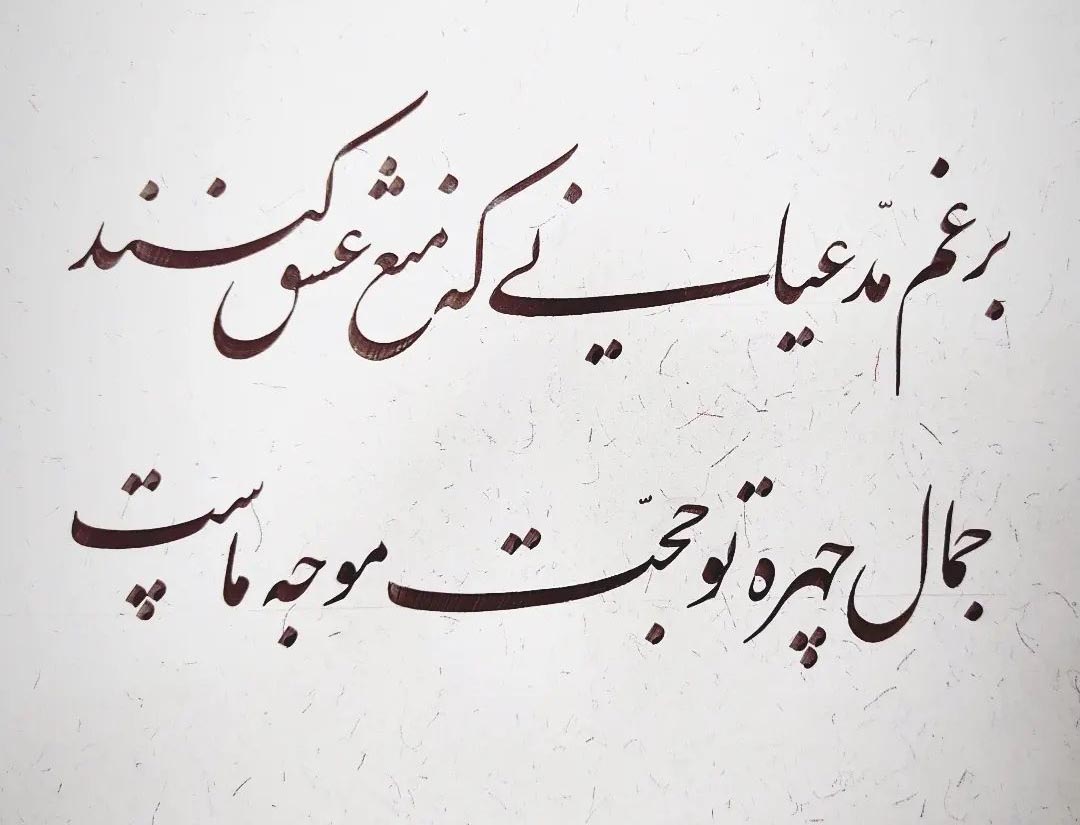 برغم مدّعیانی که منع عشق کنند
جمال چهره تو حجّت موجه ماست